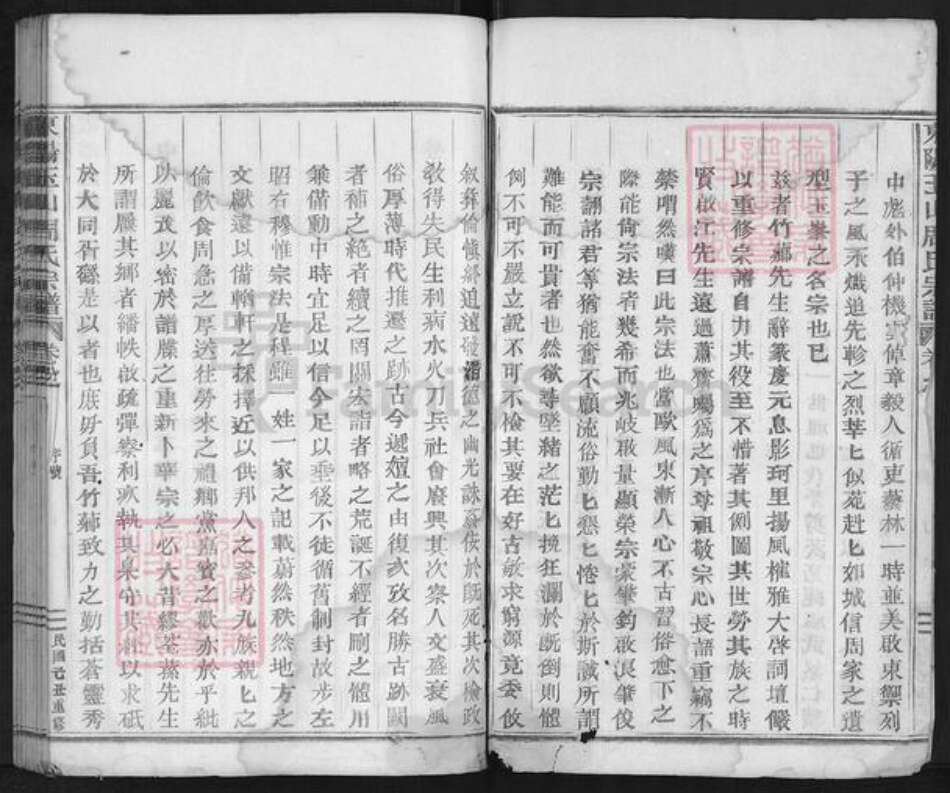 東陽玉山周氏宗譜 卷之
中彪外伯仲機雲倬章毅人循吏藝林一時並美啟東禦列
子之風禾熾追先軫之烈莘匕似苑赳匕如城信周家之遺
型玉峯之名宗也已
茲者竹薌先生辭篆慶元息影珂里揚風榷雅大啓詞壇儼
以重修宗譜自力其役至不惜著其側圖其世勞其族之時
賢啟江先生遠過蕭齋囑爲之序尊祖敬宗心長語重竊不
禁喟然嘆曰此宗法也當歐風東漸人心不古習俗愈下之
際能倚宗法者幾希而兆岐啟量顯榮宗蒙肇鈞啟浪肇俊
宗翮諸君等猶能奮不顧流俗勤匕懇匕惓匕於斯誠所謂
難能而可貴者也然欲尋墜緒之茫匕挽狂瀾於既倒則體
例不可不嚴立說不可不檢其要在好古敏求窮源竟委攸
敘彝倫愼終追遠發潛德之幽光誅姦佞於既死其次檢政
教得失民生利病水火刀兵社會廢興其次察人文盛衰風
俗厚薄時代推遷之跡古今遞嬗之由復攷名勝古跡闕
者補之絕者續之罔關宏詣者略之荒誕不經者刪之體用
兼備動中時宜足以信今足以垂後不徒循舊制封故步左
昭右穆惟宗法是程雖一姓一家之記載蔚然秩然地方之
文獻遠以備輶軒之採擇近以供邦人之參考九族親匕之
倫飲食周急之厚送往勞來之禮鄉黨嘉賓之歡亦於乎紕
以麗茂以密於譜牒之重新卜華宗之必大昔繆荃蓀先生
所謂牒其鄉者繙帙啟疏彈察利欬執其臬守其朴以求砥
於大同斫礲是以者也庶毋負吾竹薌致力之勤括蒼靈秀
東陽玉山周氏宗譜 卷之一 序號 民國己丑重修